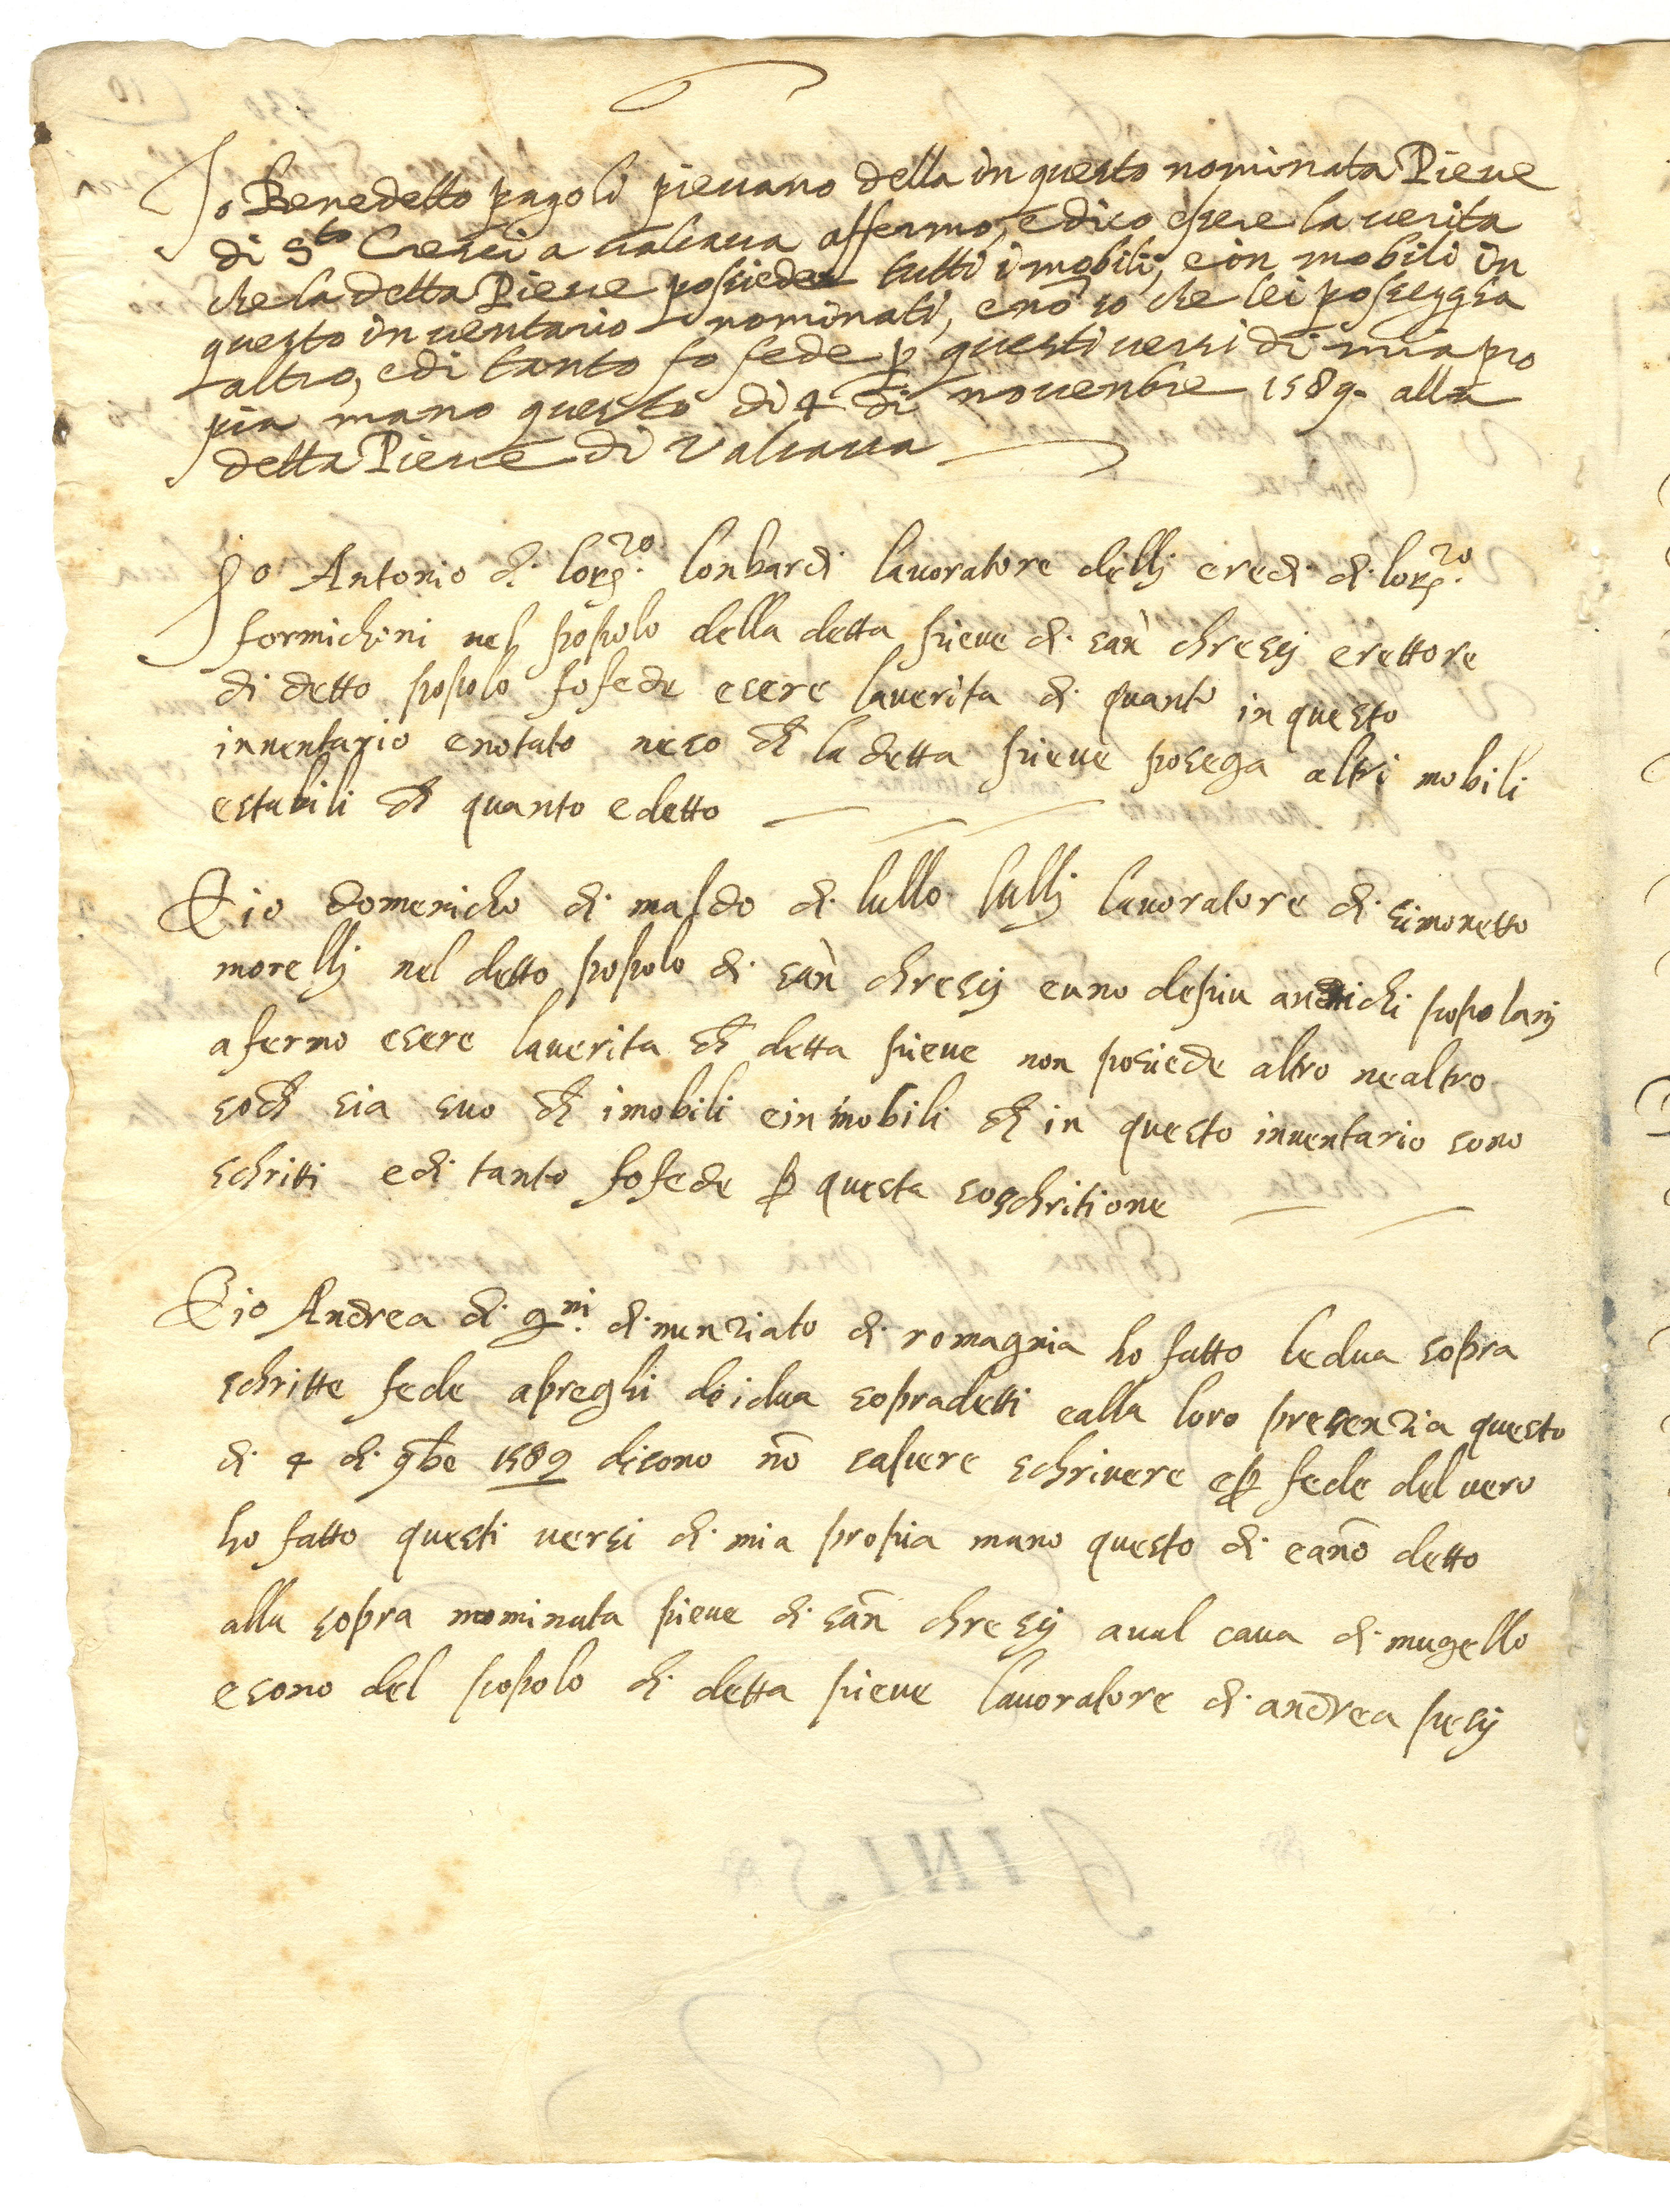 Io Benedetto pagoli pieuano della in questo nominata Pieue
di Sto Cresci a ualcaua affermo, e dico essere la uerita
che la detta Pieue possiede tutti i mobili, e in mobili in
questo inuentario nominati, e nō so che lei possegga
altro, e di tanto fo fede p questi uersi di mia pro
pia mano questo dì 4 di nouenbre 1589. alla
detta Pieue di Valcaua
Io Antonio di lorēzo lonbardi lauoratore dellj eredi di lorēzo
formichini nel popolo della detta pieue di san chresij erettore
di detto popolo fo fede esere lauerita di quanto in questo
inuentario enotato neso ch la detta pieue posega altri mobili
estabili ch quanto edetto
E io domenicho di maso do di lullo lullj lauoratore di simonetto
morellj nel detto popolo di san chresij euno depiu antichi popolanj
afermo esere lauerita ch detta pieue non posiede altro nealtro
soch sia suo ch imobili ein mobili ch in questo inuentario sono
schritti edi tanto fofede p questa soschritione
E io Andrea di gni di nunziato di romagnia ho fatto ledua sopra
schritte fede apreghi deidua sopradetti ealla loro presenzia questo
di 4 di 9bē 1589 dicono nō sapere schriuere ep fede del uero
ho fatto questi uersi di mia propia mano questo di eanō detto
alla sopra nominata pieue di san chresij aual caua di mugello
esono del popolo di detta pieue lauoratore di andrea pesij